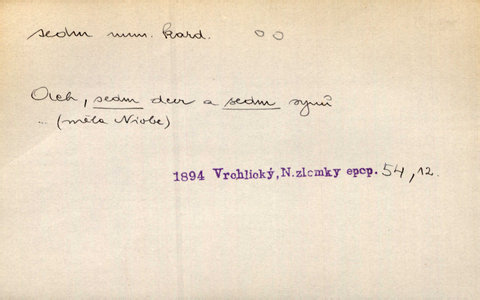 sedm num. kard. oo
Och, sedm dcer a sedm synů
... (měla Niobe)
1894 Vrchlický, N.zlomky epop. 54, 12.